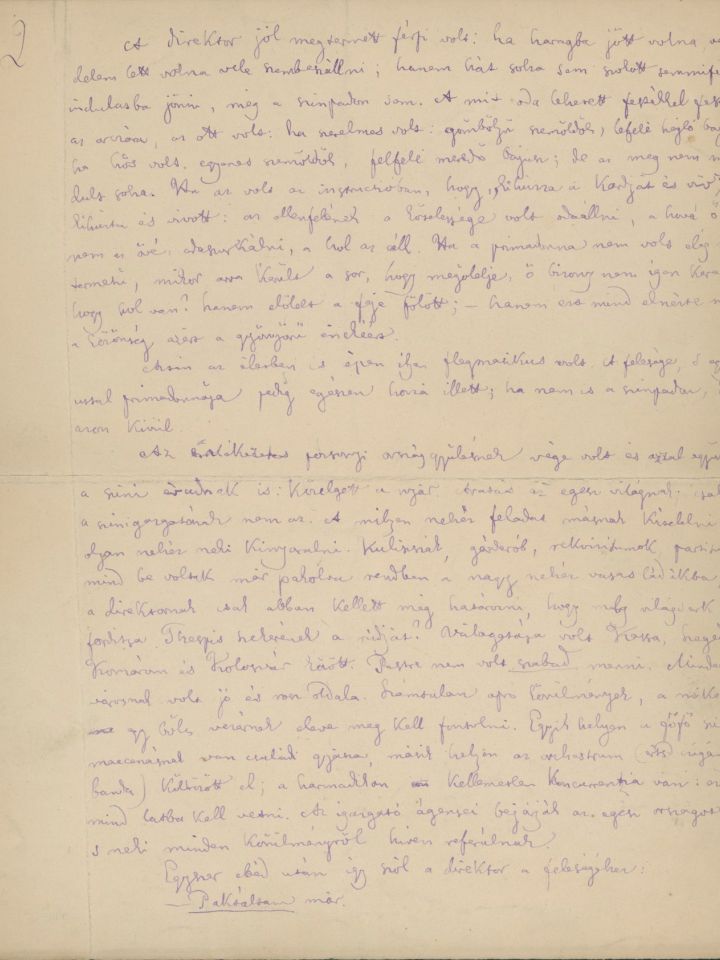 2
A direktor jól megtermett férfi volt: ha haragba jött volna
delem lett volna vele szembeszállni; hanem hát soha sem szokott semmifé
indulatba jönni, még a szinpadon sem. A mit oda lehetett festékkel
az arczára, az ott volt: ha szerelmes volt: gömbölyű szemöldök, lefelé hajló baj
ha hős volt, egyenes szemöldök, felfelé meredő bajusz; de az meg nem m
dult soha. Ha az volt az instructióban, hogy "kihuzza a kardját és viv"
kihuzta és vivott: az ellenfelének a kötelessége volt odaállni, a hová ő
nem az övé, odaszurkálni, a hol az áll. Ha a primadonna nem volt elég
termetű, mikor arra került a sor, hogy megölelje, ő bizony nem igen
hogy hol van? hanem ölelt a feje fölött; – hanem ezt mind elnézte n
a közönség azért a gyönyörű énekért.
Aztán az életben is épen ilyen flegmatikus volt. A felesége, s eg
uttal primadonnája pedig egészen hozzá illett; ha nem is a szinpadon,
azon kivül.
Az pozsonyi országgyülésnek vége volt és azzal együ
a szini évadnak is. Közelgett a nyár. az egész világnak: csak
a szinigazgatónak nem az. A milyen nehéz feladat másnak kitelelni
olyan nehéz neki kinyaralni. Kulisszák, gárderób, rekvizitumok,
mind be voltak már pakolva rendben a nagy nehéz vasas ládákba
a direktornak csak abban kellett még határozni, hogy mely világ
forditsa Thespis szekerének a rúdját? Válogatása volt Kassa, Szege
Komárom és Kolozsvár között. Pestre nem volt szabad menni. Minda
városnak volt jó és rosz oldala. Számtalan apró körülmények, a mike
egy bölcs vezérnek eleve meg kell fontolni. Egyik helyen a főfő
maecenásnak van családi gyásza, másik helyen az orchestrum (
banda) költözött el; a harmadikon kellemetlen konkurrentia van: az
mind latba kell vetni. Az igazgató ágensei bejárják az egész országot
s neki minden körülményről hiven referálnak.
Egyszer ebéd után igy szól a direktor a feleségéhez:
– Paktáltam már.